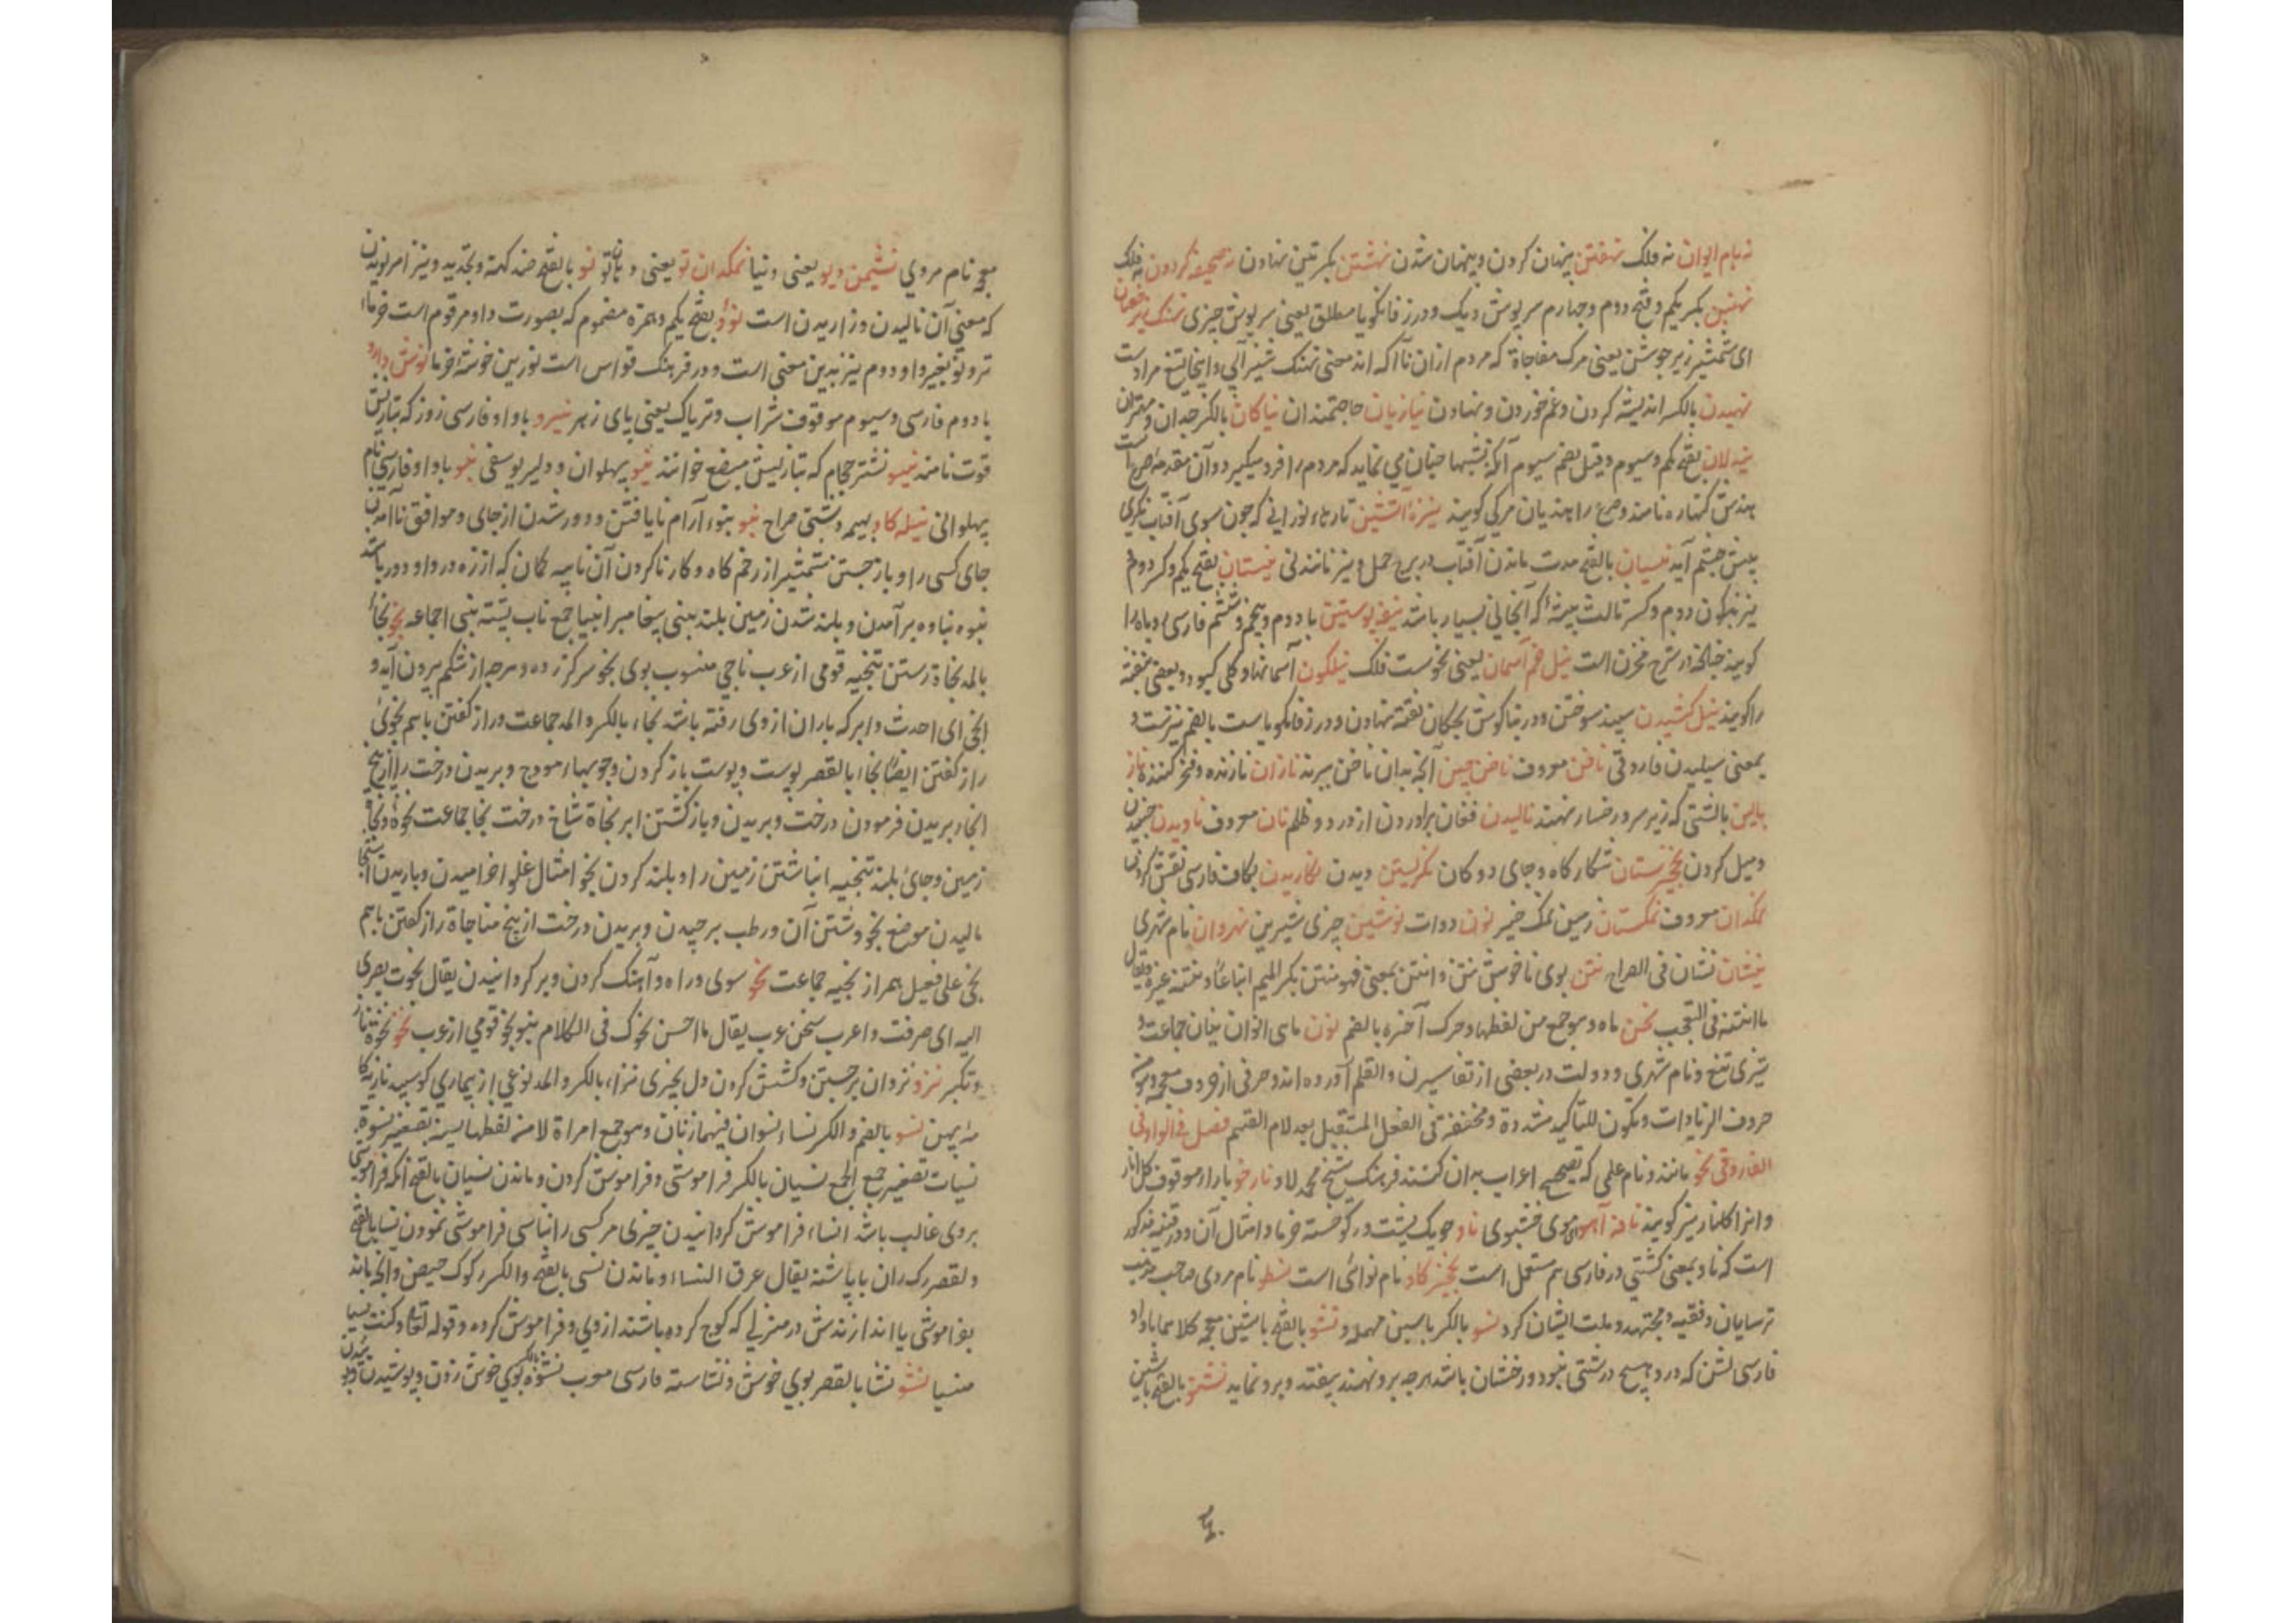 نه بام ایوان نه فلک نهفتن پنهان کردن و پنهان شدن نهشتن بکسرتین نهادن نه صحیفه گردون نه فلک
نهنبن بکسر یکم و فتح دوم و چهارم سرپوش دیک و در زفانکویا مطلق یعنی سرپوش چیزی نهنک
ای شمشیر زیر جوشن یعنی مرک مفاجاة که مردم ازان ناآکه اند معنی نهنک شیر آبی و اینجا تیغ مراد است
نهیدن بالکسر اندیشه کردن و غم خوردن و نهادن نیازیان حاجتمندان نیاکان بالکسر جدان و مهتران
بفتح یکم و سیوم و قیل بضم سیوم آنکه بشبها چنان می نماید که مردم را فرو میکیرد و آن مقدمه صرع است
بهندش نامند و صرع را هندیان مرکی کویند نیزه آتشین تارهاء نورانی که چون سوی آفتاب نکری
پیش چشم آید نیسان بالفتح مدت ماندن آفتاب در برج حمل و نیز نام نیستان بفتح یکم و کسر دوم
نیز بسکون دوم و کسر ثالث بیشه که آنجا نی بسیار باشد نیفه پوستین با دوم و پنجم و ششم فارسی روباه را
کویند چنانچه در شرح مخزن است نیل خم آسمان یعنی نحوست فلک نیلکون آسمانها و کلی کبود و بعضی بنفشه
را کویند نیل کشیدن سپند سوختن و در بناکوش بچکان نقطه نهادن و در زفانکویاست بالضم نیزست و
بمعنی سیلیدن فاروقی ناخن معروف ناخن چین آنچه بدان ناخن ببرند نازان نازنده و فخر کننده ناز
بالین بالشتی که زیر سر و رخسار نهند نالیدن فغان برآوردن از درد و ظلم نان معروف ناویدن
و میل کردن نخچرستان شکار کاه و جای دوکان نکریستن دیدن نکاریدن بکاف فارسی نقش کردن
نمکدان معروف نمکستان زمین نمک خیز نون دوات نوشین چیزی شیرین نهروان نام شهری
نیشان نشان فی الصراح نتن بوی ناخوش نتن و انتن بمعنی فهو منتن بکسر المیم اتباعا و نتنه غیره و یقال
ما انتنه فی التعجب نحن ماه و هو جمع من لفظها و حرک آخره بالضم نون ماهی انوان نینان جماعت و
تیزی تیغ و نام شهری و دولت در بعضی از تفاسیر ن والقلم آورده اند و حرفی از حروف معجم و هو من
حروف الزیادات و یکون للتاکید مشددة و مخففة فی الفعل المستقبل بعد لام القسم فصل فی الواو فی
الفاروقی نحو مانند و نام علمی که تصحیح اعراب بدان کنند فرهنک شیخ محمد لاد نارخو با راء موقوف کل انار
و انرا کلنار نیز کویند نافه آهو موی خشبوی ناو جویک پشت در کو خسته خرما و امثال آن و در قنیه مذکور
است که ناو بمعنی کشتی در فارسی هم مستعمل است نخچیر کاو نام نوائی است نسطو نام مردی صاحب مذهب
ترسایان و فقیه و مجتهد و ملت ایشان کرد نسو بالکسر با سین مهمله و نشو بالفتح با شین معجمه کلاهما با واو
فارسی لشن که درو هیچ درشتی نبود و رخشان باشد هرچه برو نهند بیفتد و برو نماید نشتو بالفتح با شین
معجمه نام مردی نشیمن دیو یعنی دنیا نمکدان تو یعنی دهان تو نو بالفتح ضد کهنه و بتجدید و نیز امر نویدن
که معنی آن نالیدن و زاریدن است نوؤ بفتح یکم و همزه مضموم که بصورت واو مرقوم است خرماء
تر و نو بغیر واو دوم نیز بدین معنی است و در فرهنک قواس است نو زین خوشه خرما نوش دارو
با دوم فارسی و سیوم موقوف شراب و تریاک یعنی پای زهر نیرو با واو فارسی زور که بتازیش
قوت نامند نیسو نشتر حجام که بتازیش مبضع خوانند نیو پهلوان و دلیر یوسفی نیو با واو فارسی نام
پهلوانی نیله کاو بهیمه دشتی صراح نبو نبوء آرام نایافتن و دور شدن از جای و موافق ناآمدن
جای کسی را و باز جستن شمشیر از زخم کاه و کار ناکردن آن نابیه کمان که از زه در واو دور باشد
نبوه نباوه برآمدن و بلند شدن زمین بلند نبی پیغامبر انبیا جمع ناب پشته نبی اجماعه نجو نجاء
بالمد نجاة رستن تنجیه قومی از عرب ناجی منسوب بوی نجو سرکز رده و هرچه از شکم بیرون آید و
انجی ای احدث و ابر که باران از وی رفته باشد نجاء بالکسر و المد جماعت و راز کفتن باهم نجوی
راز کفتن ایضا نجا بالقصر پوست و پوست باز کردن و چوبهاء هودج و بریدن درخت را از بیخ
انجاء بریدن فرمودن درخت و بریدن و باز کشتن ابر نجاة شاخ درخت نجا جماعت نجوة و نجا
زمین و جای بلند تنجیه انباشتن زمین را و بلند کردن نجو امثال غلو اخرامیدن و باریدن استنجا
مالیدن موضع نجو و شستن آن و رطب برچیدن و بریدن درخت از بیخ مناجاة راز کفتن باهم
نجی علی فعیل همراز نجیه جماعت نحو سوی و راه و آهنک کردن و برکردانیدن یقال نحوت بصری
الیه ای صرفت و اعرب سخن عرب یقال ما احسن نحوک فی الکلام بنو نحو قومی از عرب نخو نخوة ناز
و تکبر نزو نزوان برجستن و کشش کردن دل بچیزی نزاء بالکسر و المد نوعی از بیماری کوسپند
نسو بالضم و الکسر نساء نسوان فیهما زنان و هو جمع امراة لا من لفظها نسیة تصغیر نسوة
نسیات تصغیر جمع الجمع نسیان بالکسر فراموشی و فراموش کردن و ماندن نسیان بالفتح آنکه فراموشی
بروی غالب باشد انساء فراموش کردانیدن چیزی مر کسی را تناسی فراموشی نمودن نسا بالفتح
و القصر رک ران با پاشنه یقال عرق النساء و ماندن نسی بالفتح و الکسر رکوک حیض و آنچه ماند
بفراموشی یا اندازندش در منزلی که کوچ کرده باشند ازوی و فراموش کرده و قوله تعالی و کنت نسیا
منسیا نشو نشا بالقصر بوی خوش و نشاسته فارسی معرب نشوة بالکسر بوی خوش زدن و پوشیدن